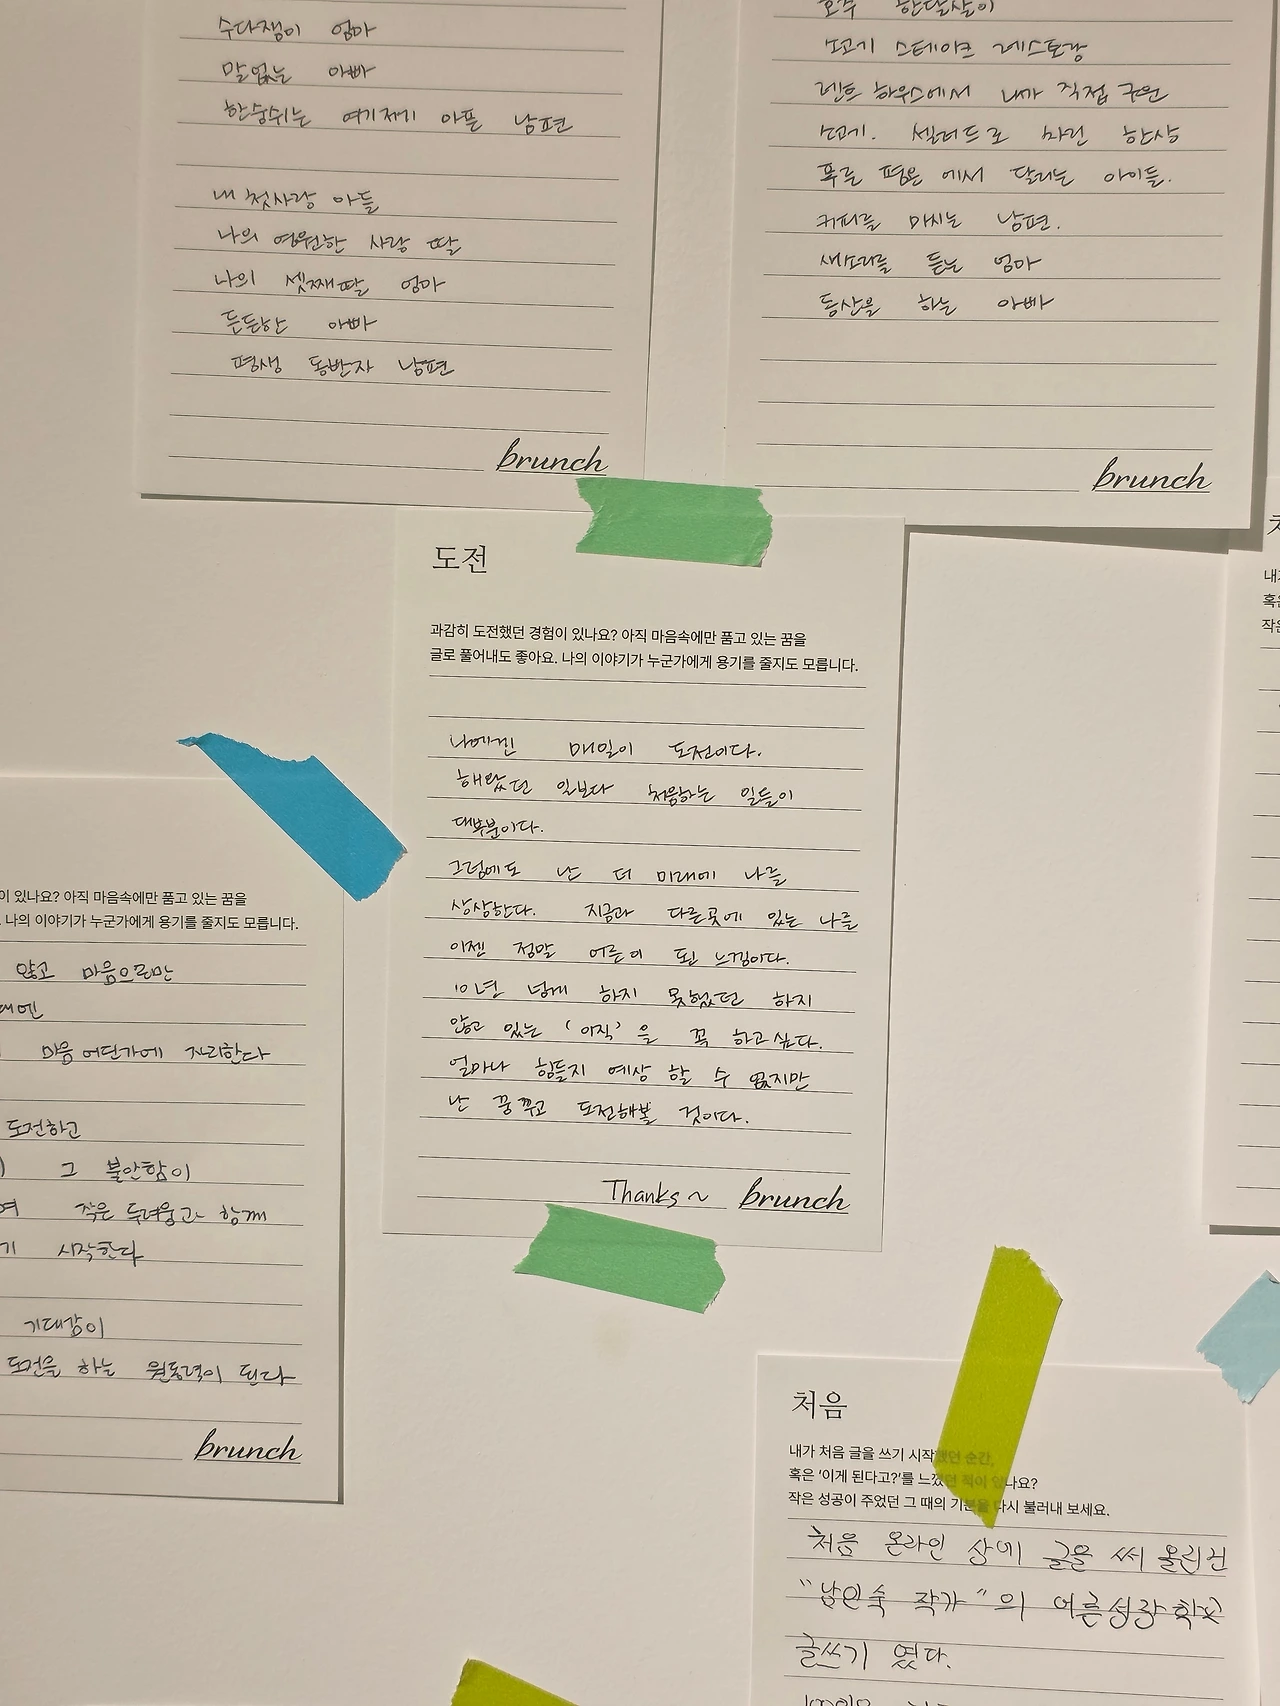 수다쟁이 엄마
말없는 아빠
한숨쉬는 여기저기 아픈 남편
내 첫사랑 아들
나의 영원한 사랑 딸
나의 셋째딸 엄마
든든한 아빠
평생 동반자 남편
brunch
호주 한달살이
소고기 스테이크 레스토랑
렌트 하우스에서 내가 직접 구운
소고기. 샐러드로 차린 한상
푸른 평온에서 달리는 아이들.
커피를 마시는 남편.
새소리를 듣는 엄마
등산을 하는 아빠
brunch
도전
과감히 도전했던 경험이 있나요? 아직 마음속에만 품고 있는 꿈을
글로 풀어내도 좋아요. 나의 이야기가 누군가에게 용기를 줄지도 모릅니다.
나에겐 매일이 도전이다.
해왔던 일보다 처음하는 일들이
대부분이다.
그럼에도 난 더 미래에 나를
상상한다. 지금과 다른곳에 있는 나를
이젠 정말 어른이 된 느낌이다.
10년 넘게 하지 못했던 하지
않고 있는 '아직'을 꼭 하고싶다.
얼마나 힘들지 예상 할 수 없지만
난 꿈꾸고 도전해볼 것이다.
Thanks~ brunch
이 있나요? 아직 마음속에만 품고 있는 꿈을
나의 이야기가 누군가에게 용기를 줄지도 모릅니다.
않고 마음으로만
마음 어딘가에 자리한다
도전하고
그 불안함이
작은 두려움과 함께
시작한다
기대감이
도전을 하는 원동력이 된다
brunch
처음
내가 처음 글을 쓰기 시작했던 순간,
혹은 '이게 된다고?'를 느꼈던 적이 있나요?
작은 성공이 주었던 그 때의 기분을 다시 불러내 보세요.
처음 온라인 상에 글을 써 올린건
"남인숙 작가"의 어른성장학교
글쓰기 였다.